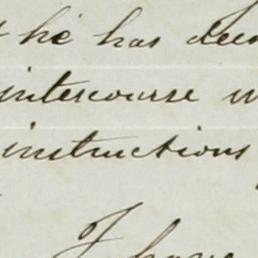 he has
intercourse
instructions
I have